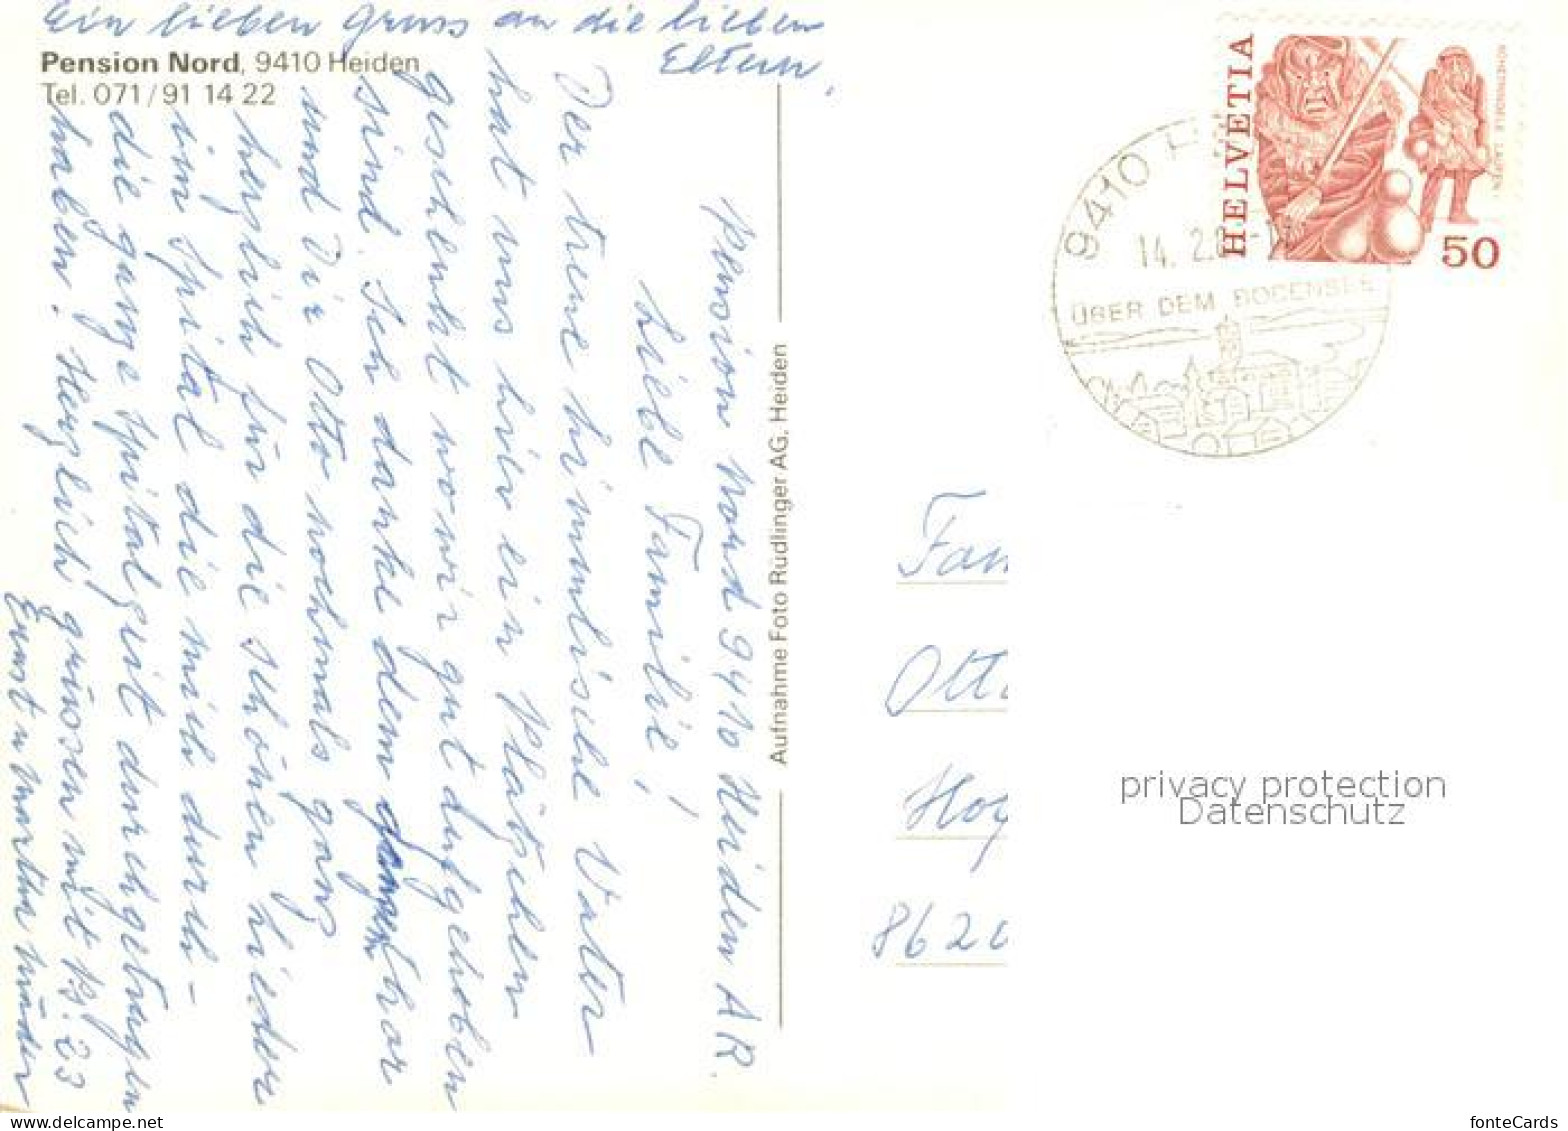 Ein lieben Gruss an die lieben
Eltern.
Pension Nord, 9410 Heiden
Tel. 071/91 14 22
Pension Nord 9410 Heiden AR.
Liebe Familie!
Der treue himmlische Vater
hat uns hier ein Plätzchen
geschenkt wo wir gut aufgehoben
sind. Ich danke dem
und Dir Otto nochmals ganz
herzlich für die schönen Lieder
im Spital die mich durch-
die ganze Spitalzeit durchgetragen
haben! Herzlich grüssen mit Ps. 23
Ernst u Martha
Aufnahme Foto Rudlinger AG, Heiden
HELVETIA
50
9410 H
14. 2.8
ÜBER DEM BODENSEE
Fam
Otto
Hoy
862
privacy protection
Datenschutz
fonteCards